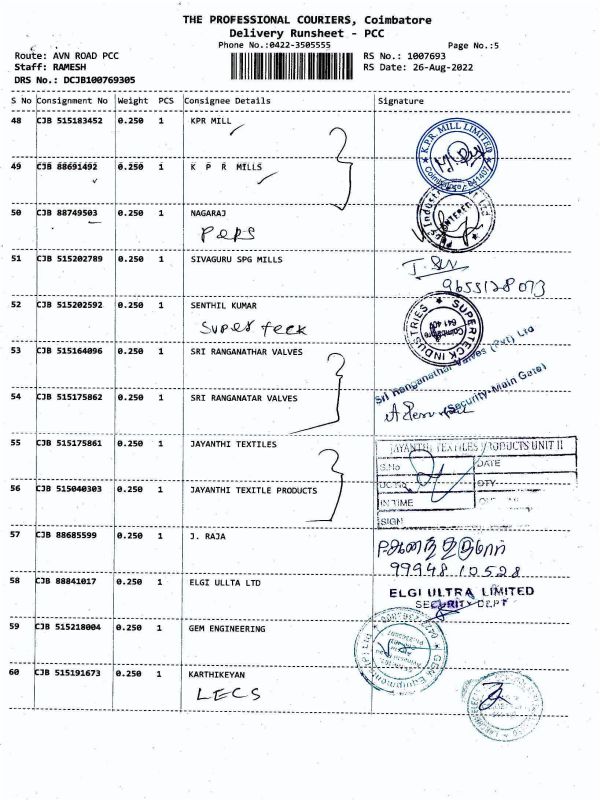 THE PROFESSIONAL COURIERS, Coimbatore
Delivery Runsheet - PCC
Phone No.:0422-3505555
Page No.:5
Route: AVN ROAD PCC
RS No.: 1007693
Staff: RAMESH
RS Date: 26-Aug-2022
DRS No.: DCJB100769305
S No Consignment No Weight PCS Consignee Details Signature
48 CJB 515183452 0.250 1 KPR MILL
K.P.R. MILL LIMITED
49 CJB 88691492 0.250 1 K P R MILLS
50 CJB 88749503 0.250 1 NAGARAJ
PePS
51 CJB 515202789 0.250 1 SIVAGURU SPG MILLS
9655128073
52 CJB 515202592 0.250 1 SENTHIL KUMAR
Super teck
SUPERTECK INDUSTRIES
Coimbatore
53 CJB 515164096 0.250 1 SRI RANGANATHAR VALVES
Sri Ranganathar Valves (Pvt) Ltd
(Security-Main Gate)
54 CJB 515175862 0.250 1 SRI RANGANATAR VALVES
55 CJB 515175861 0.250 1 JAYANTHI TEXTILES
JAYANTHI TEXTILES PRODUCTS UNIT II
S.No DATE
QTY
IN TIME
SIGN
56 CJB 515040303 0.250 1 JAYANTHI TEXITLE PRODUCTS
57 CJB 88685599 0.250 1 J. RAJA
99948 10528
58 CJB 88841017 0.250 1 ELGI ULLTA LTD
ELGI ULTRA LIMITED
SECURITY DEPT
59 CJB 515218004 0.250 1 GEM ENGINEERING
60 CJB 515191673 0.250 1 KARTHIKEYAN
LECS